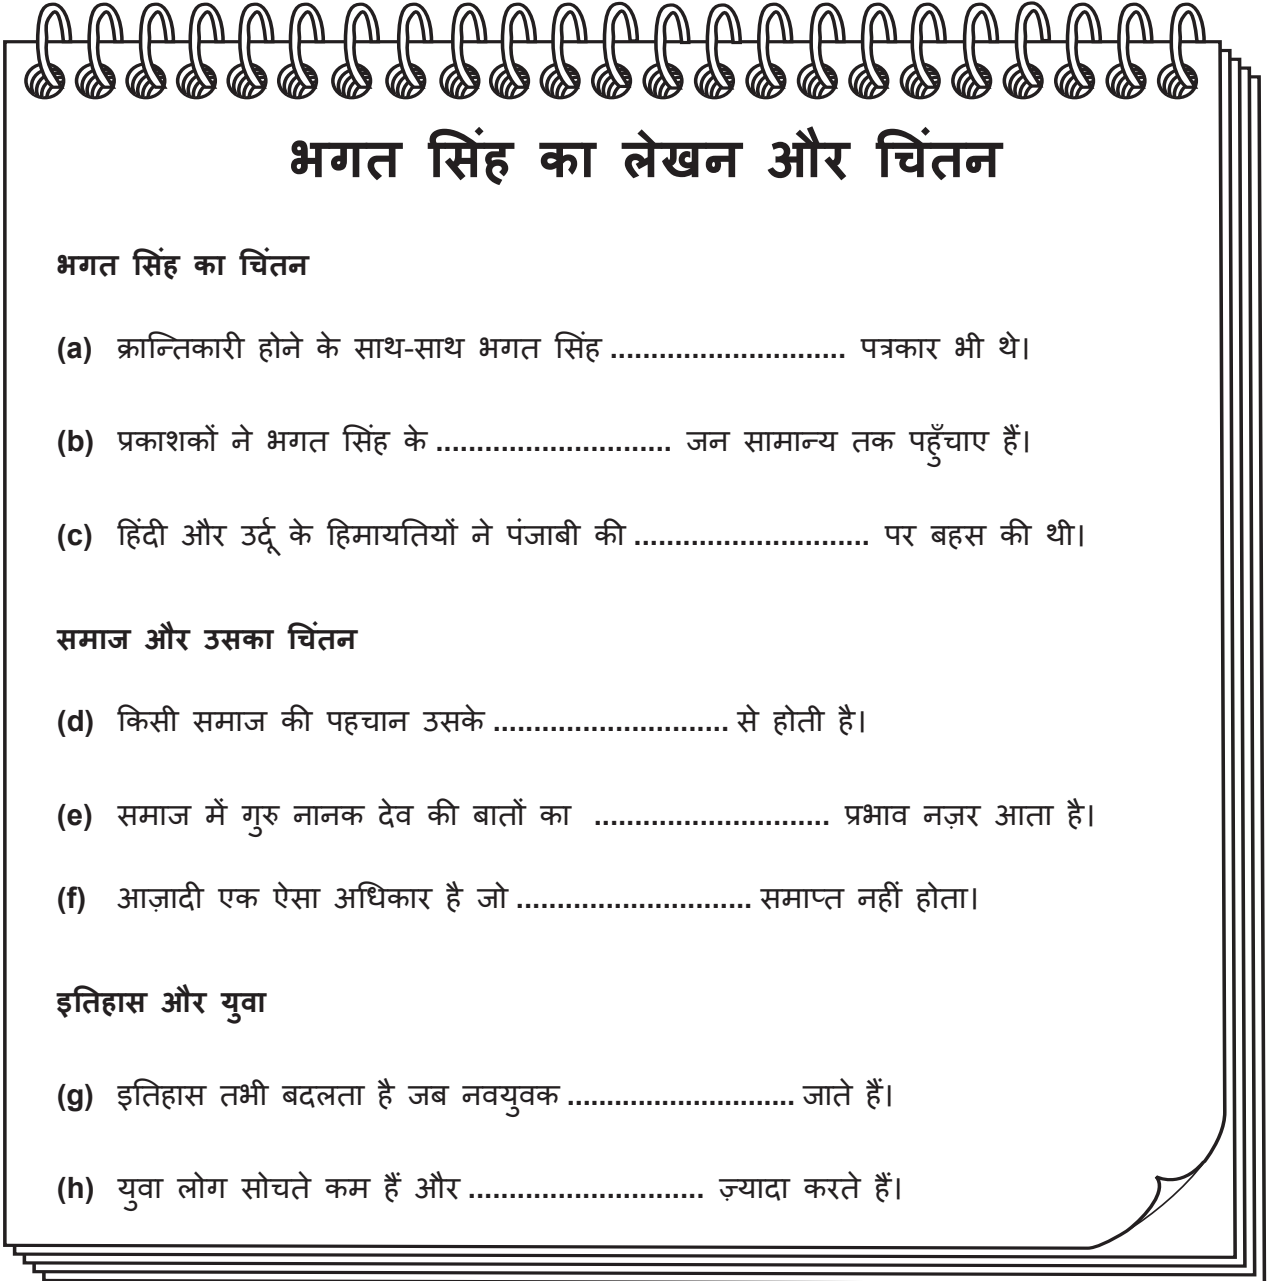 भगत सिंह का लेखन और चिंतन
भगत सिंह का चिंतन
(a) क्रान्तिकारी होने के साथ-साथ भगत सिंह ............................. पत्रकार भी थे।
(b) प्रकाशकों ने भगत सिंह के ............................. जन सामान्य तक पहुँचाए हैं।
(c) हिंदी और उर्दू के हिमायतियों ने पंजाबी की ............................. पर बहस की थी।
समाज और उसका चिंतन
(d) किसी समाज की पहचान उसके ............................. से होती है।
(e) समाज में गुरु नानक देव की बातों का ............................. प्रभाव नज़र आता है।
(f) आज़ादी एक ऐसा अधिकार है जो ............................. समाप्त नहीं होता।
इतिहास और युवा
(g) इतिहास तभी बदलता है जब नवयुवक ............................ जाते हैं।
(h) युवा लोग सोचते कम हैं और ............................. ज़्यादा करते हैं।